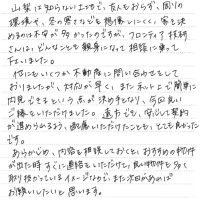 山梨は知らない土地で、友人もおらず、周りの
環境や、冬の寒さなども想像しにくく、家を決
めるのは不安が多かったのですが、フロンティア技研
さんは、どんなことも親身になって相談に乗って
下さいました。
他にもいくつか不動産に問い合わせをして
おりましたが、対応が早く、またネット上で簡単に
内見できるという点が決め手となり、今回良い
ご縁をいただけました。遠方でも、安心して契約
が進められるよう、配慮いただけたことも、とても良かった
です。
あらかじめ、内容を相談しておくと、おすすめの物件
が出た時すぐに連絡をいただけた、良い物件を多く
取り扱っているイメージなど、また次回があれば
お願いしたいと思います。